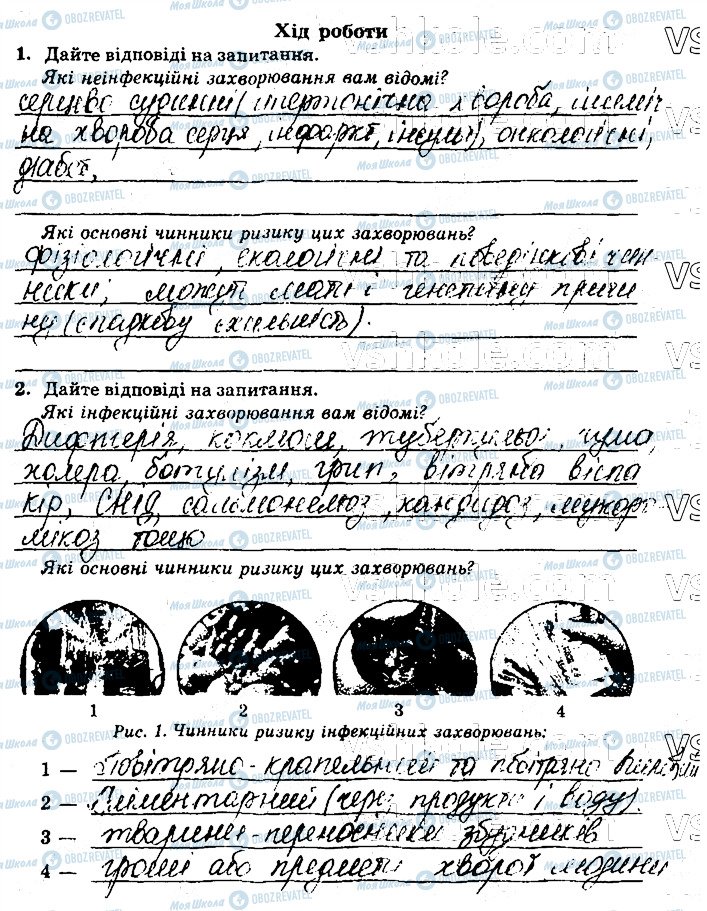 Хід роботи
1. Дайте відповіді на запитання.
Які неінфекційні захворювання вам відомі?
серцево судинні (гіпертонічна хвороба, ішеміч-
на хвороба серця, інфаркт, інсульт), онкологічні,
діабет.
Які основні чинники ризику цих захворювань?
Фізіологічні, екологічні та поведінкові чин-
ники, можуть мати і генетичну причи
ну (спадкову схильність).
2. Дайте відповіді на запитання.
Які інфекційні захворювання вам відомі?
Дифтерія, коклюш, туберкульоз, чума,
холера, ботулізм, грип, вітряна віспа
кір, СНІД, сальмонельоз, кандидоз, мукоро-
мікоз тощо
Які основні чинники ризику цих захворювань?
1 2 3 4
Рис. 1. Чинники ризику інфекційних захворювань:
1 — Повітряно-крапельний та повітряно
2 — Аліментарний (через продукти і воду).
3 — тварини-переносники збудників
4 — гроші або предмети хворої людини